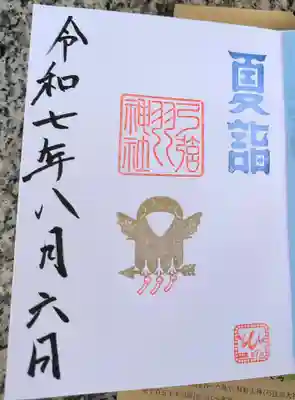 夏詣
弓弦
羽
神社
令和七年八月六日